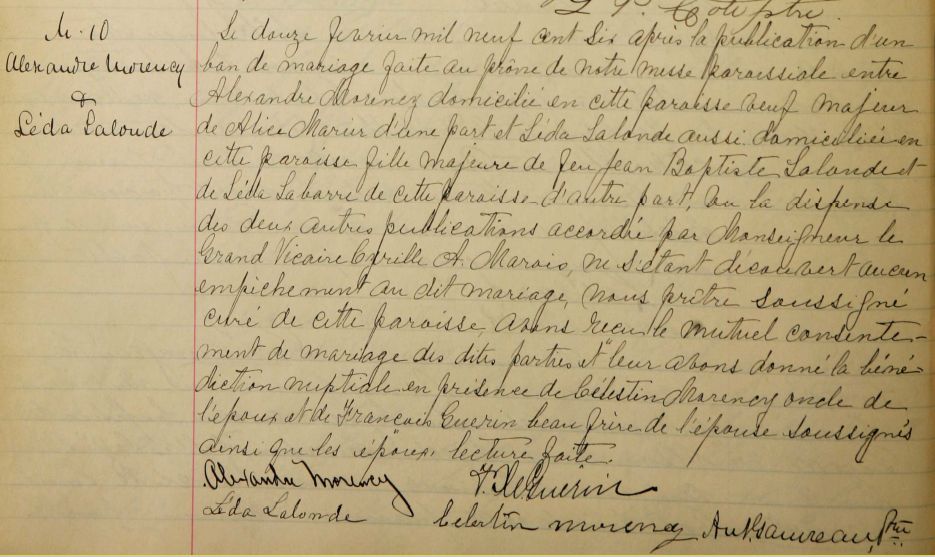 M. 10
Alexandre Morency
&
Léda Lalonde
Le douze février mil neuf cent six après la publication d'un
ban de mariage faite au prône de notre messe paroissiale entre
Alexandre Morency domicilié en cette paroisse veuf majeur
de Alice Marier d'une part et Léda Lalonde aussi domiciliée en
cette paroisse fille majeure de feu Jean Baptiste Lalonde et
de Léda Labarre de cette paroisse d'autre part, vu la dispense
des deux autres publications accordé par Monseigneur le
Grand Vicaire Cyrille A. Marois, ne s'étant découvert aucun
empêchement au dit mariage, nous prêtre soussigné
curé de cette paroisse avons reçu le mutuel consente-
ment de mariage des dites parties et leur avons donné la béné-
diction nuptiale en présence de Célestin Morency oncle de
l'époux et de François Guerin beau frère de l'épouse soussignés
ainsi que les époux, lecture faite.
Alexandre Morency Guerin
Léda Lalonde Celestin Morency Ptre